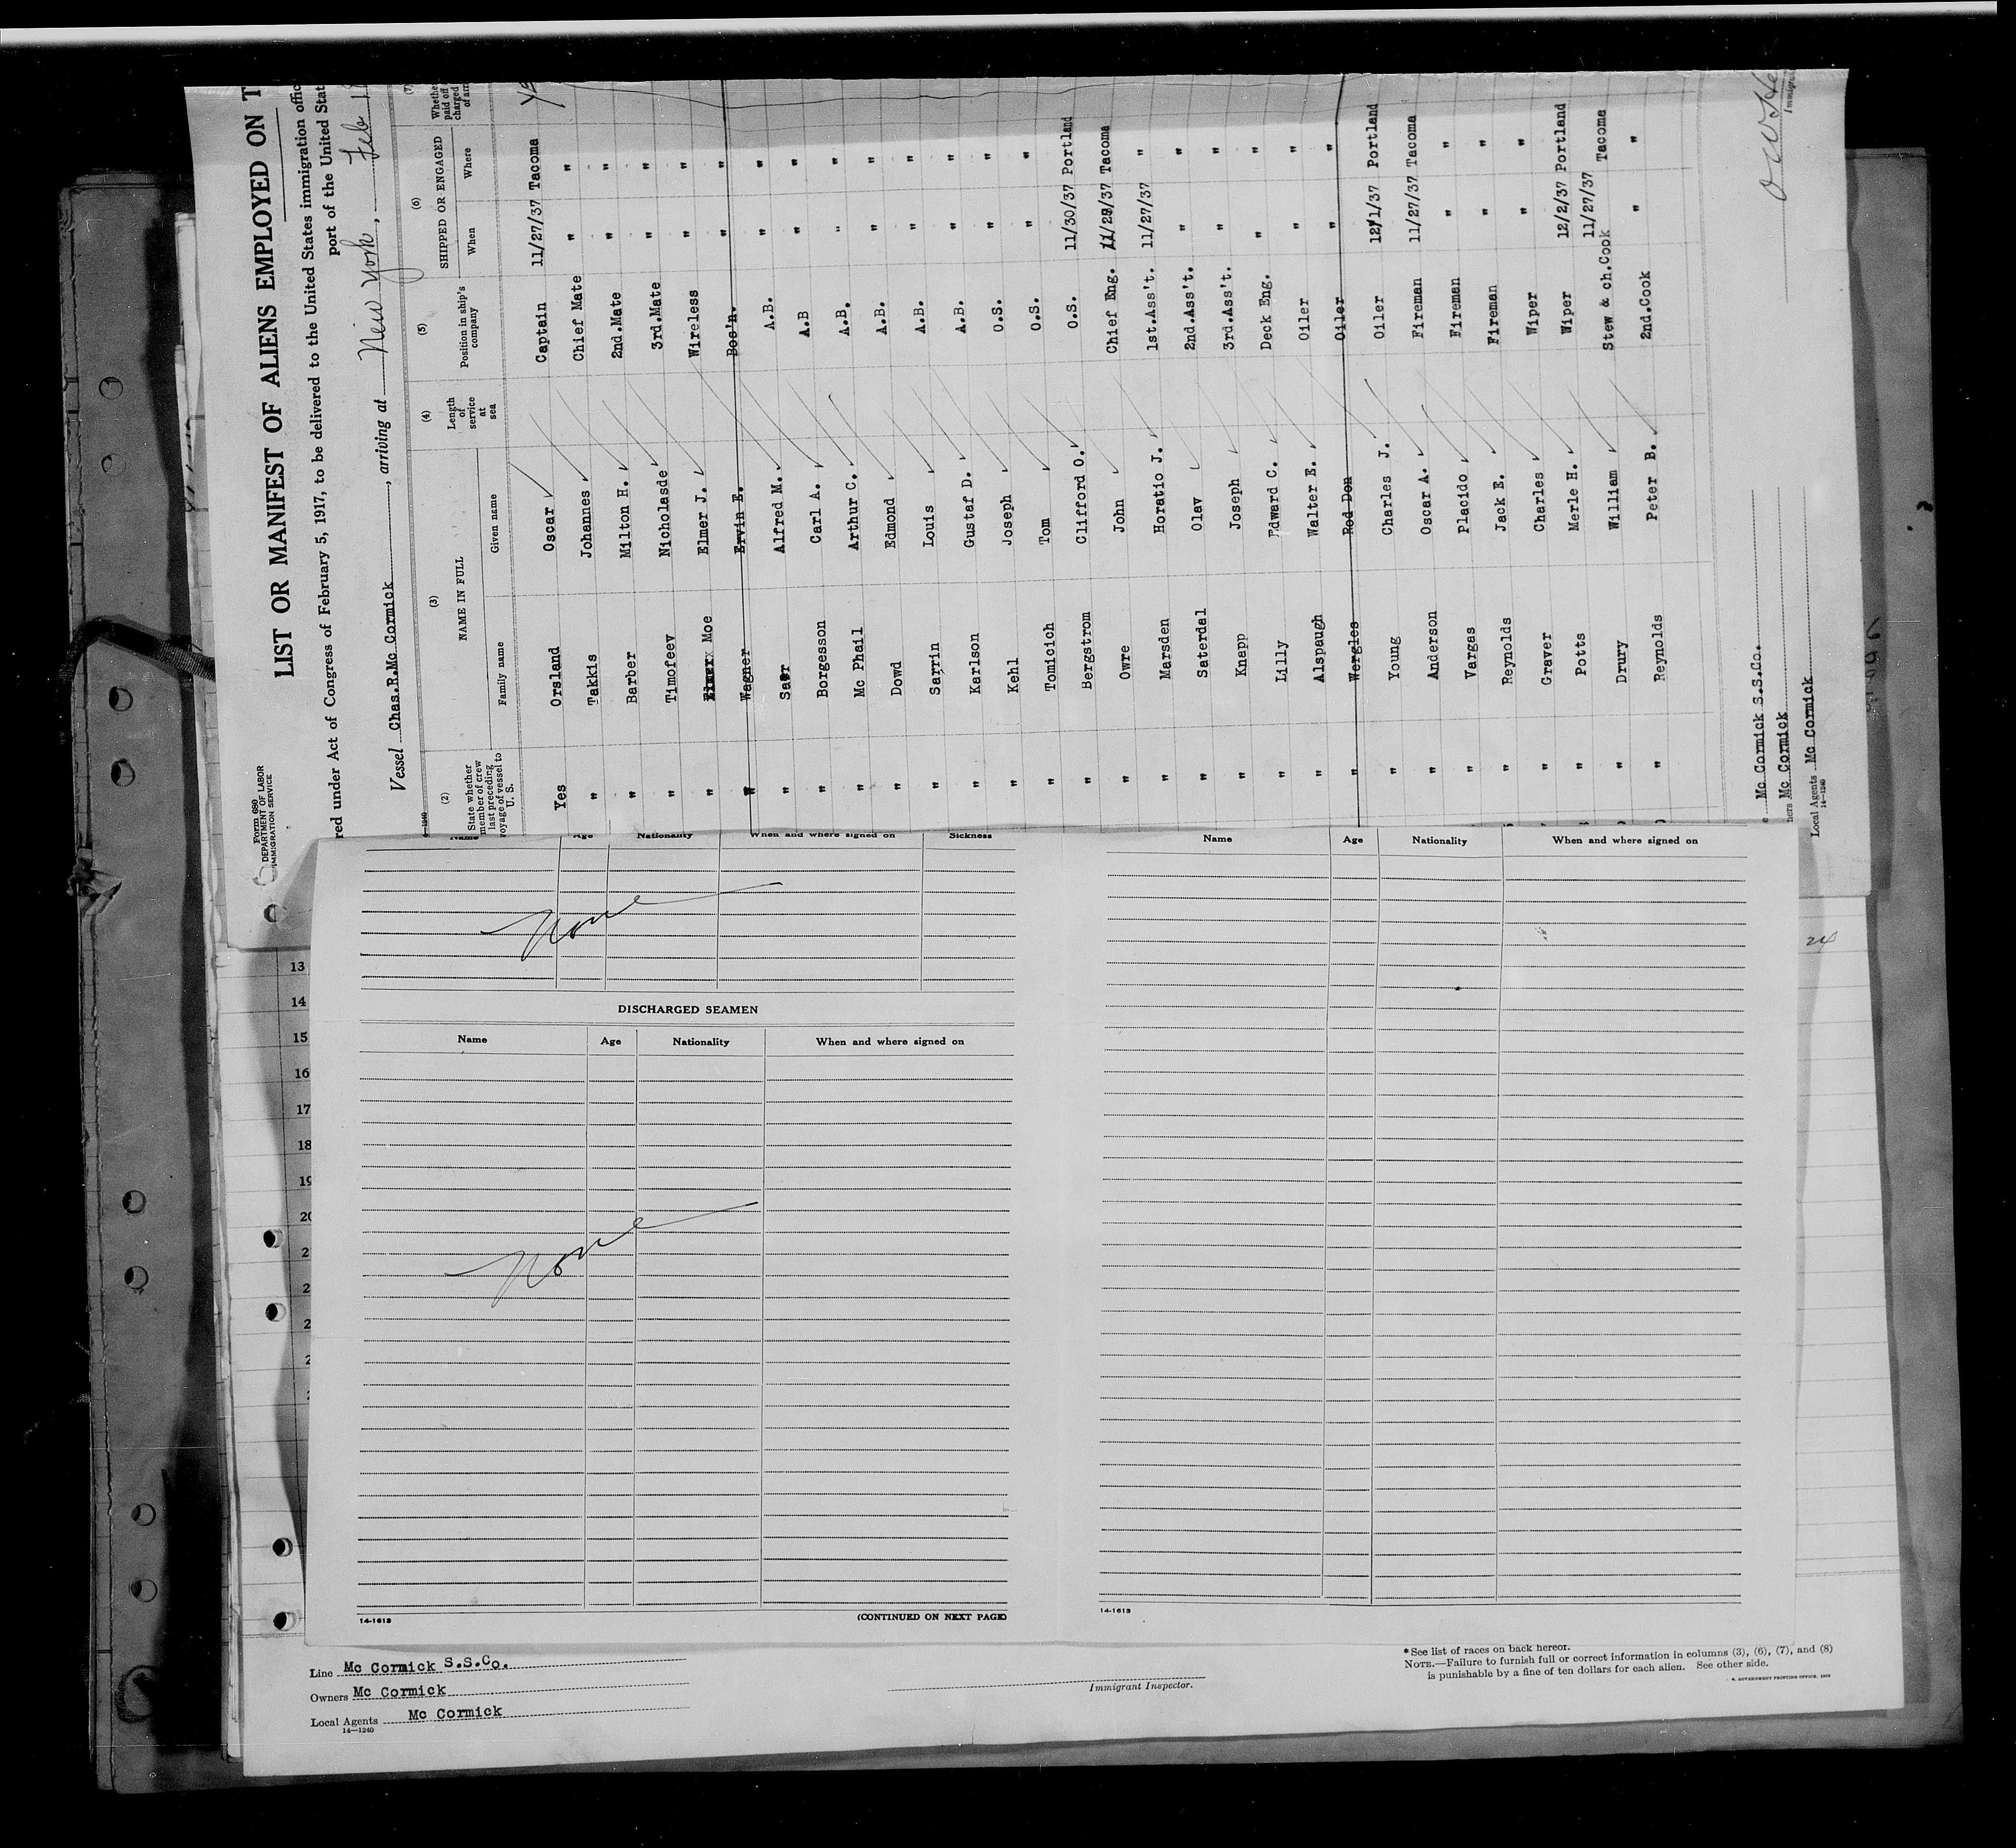 Form 680
DEPARTMENT OF LABOR
IMMIGRATION SERVICE
LIST OR MANIFEST OF ALIENS EMPLOYED ON T
red under Act of Congress of February 5, 1917, to be delivered to the United States immigration offic
port of the United Stat
Vessel Chas.R.Mc Cormick, arriving at New York, Feb
(2) (3) (4) (5) (6) (7)
State whether member of crew last preceding voyage of vessel to U. S.
NAME IN FULL
Family name Given name
Length of service at sea
Position in ship's company
SHIPPED OR ENGAGED
When Where
Yes Orsland Oscar Captain 11/27/37 Tacoma
" Takkis Johannes Chief Mate " "
" Barber Milton H. 2nd.Mate " "
" Timofeev Nicholasde 3rd.Mate " "
" Moe Elmer J. Wireless " "
" Wagner Ervin E. Bos'n. " "
" Saer Alfred M. A.B. " "
" Borgesson Carl A. A.B " "
" Mc Phail Arthur C. A.B. " "
" Dowd Edmond A.B. " "
" Sarrin Louis A.B. " "
" Karlson Gustaf D. A.B. " "
" Kehl Joseph O.S. " "
" Tomicich Tom O.S. " "
" Bergstrom Clifford O. O.S. 11/30/37 Portland
" Owre John Chief Eng. 11/29/37 Tacoma
" Marsden Horatio J. 1st.Ass't. 11/27/37 "
" Saterdal Olav 2nd.Ass't. " "
" Knapp Joseph 3rd.Ass't. " "
" Lilly Edward C. Deck Eng. " "
" Alspaugh Walter E. Oiler " "
" Wergles Rod Don Oiler " "
" Young Charles J. Oiler 12/1/37 Portland
" Anderson Oscar A. Fireman 11/27/37 Tacoma
" Vargas Placido Fireman " "
" Reynolds Jack E. Fireman " "
" Graver Charles Wiper " "
" Potts Merle H. Wiper 12/2/37 Portland
" Drury William Stew & ch.Cook 11/27/37 Tacoma
" Reynolds Peter B. 2nd.Cook " "
Mc Cormick S.S.Co.
ners Mc Cormick
Local Agents Mc Cormick
14—1240
Name Age Nationality When and where signed on Sickness
None
DISCHARGED SEAMEN
Name Age Nationality When and where signed on
None
14-1613
(CONTINUED ON NEXT PAGE)
Name Age Nationality When and where signed on
14-1613
24
13
14
15
16
17
18
19
Line Mc Cormick S.S.Co.
Owners Mc Cormick
Local Agents Mc Cormick
14—1240
Immigrant Inspector.
*See list of races on back hereof.
NOTE.—Failure to furnish full or correct information in columns (3), (6), (7), and (8)
is punishable by a fine of ten dollars for each alien. See other side.